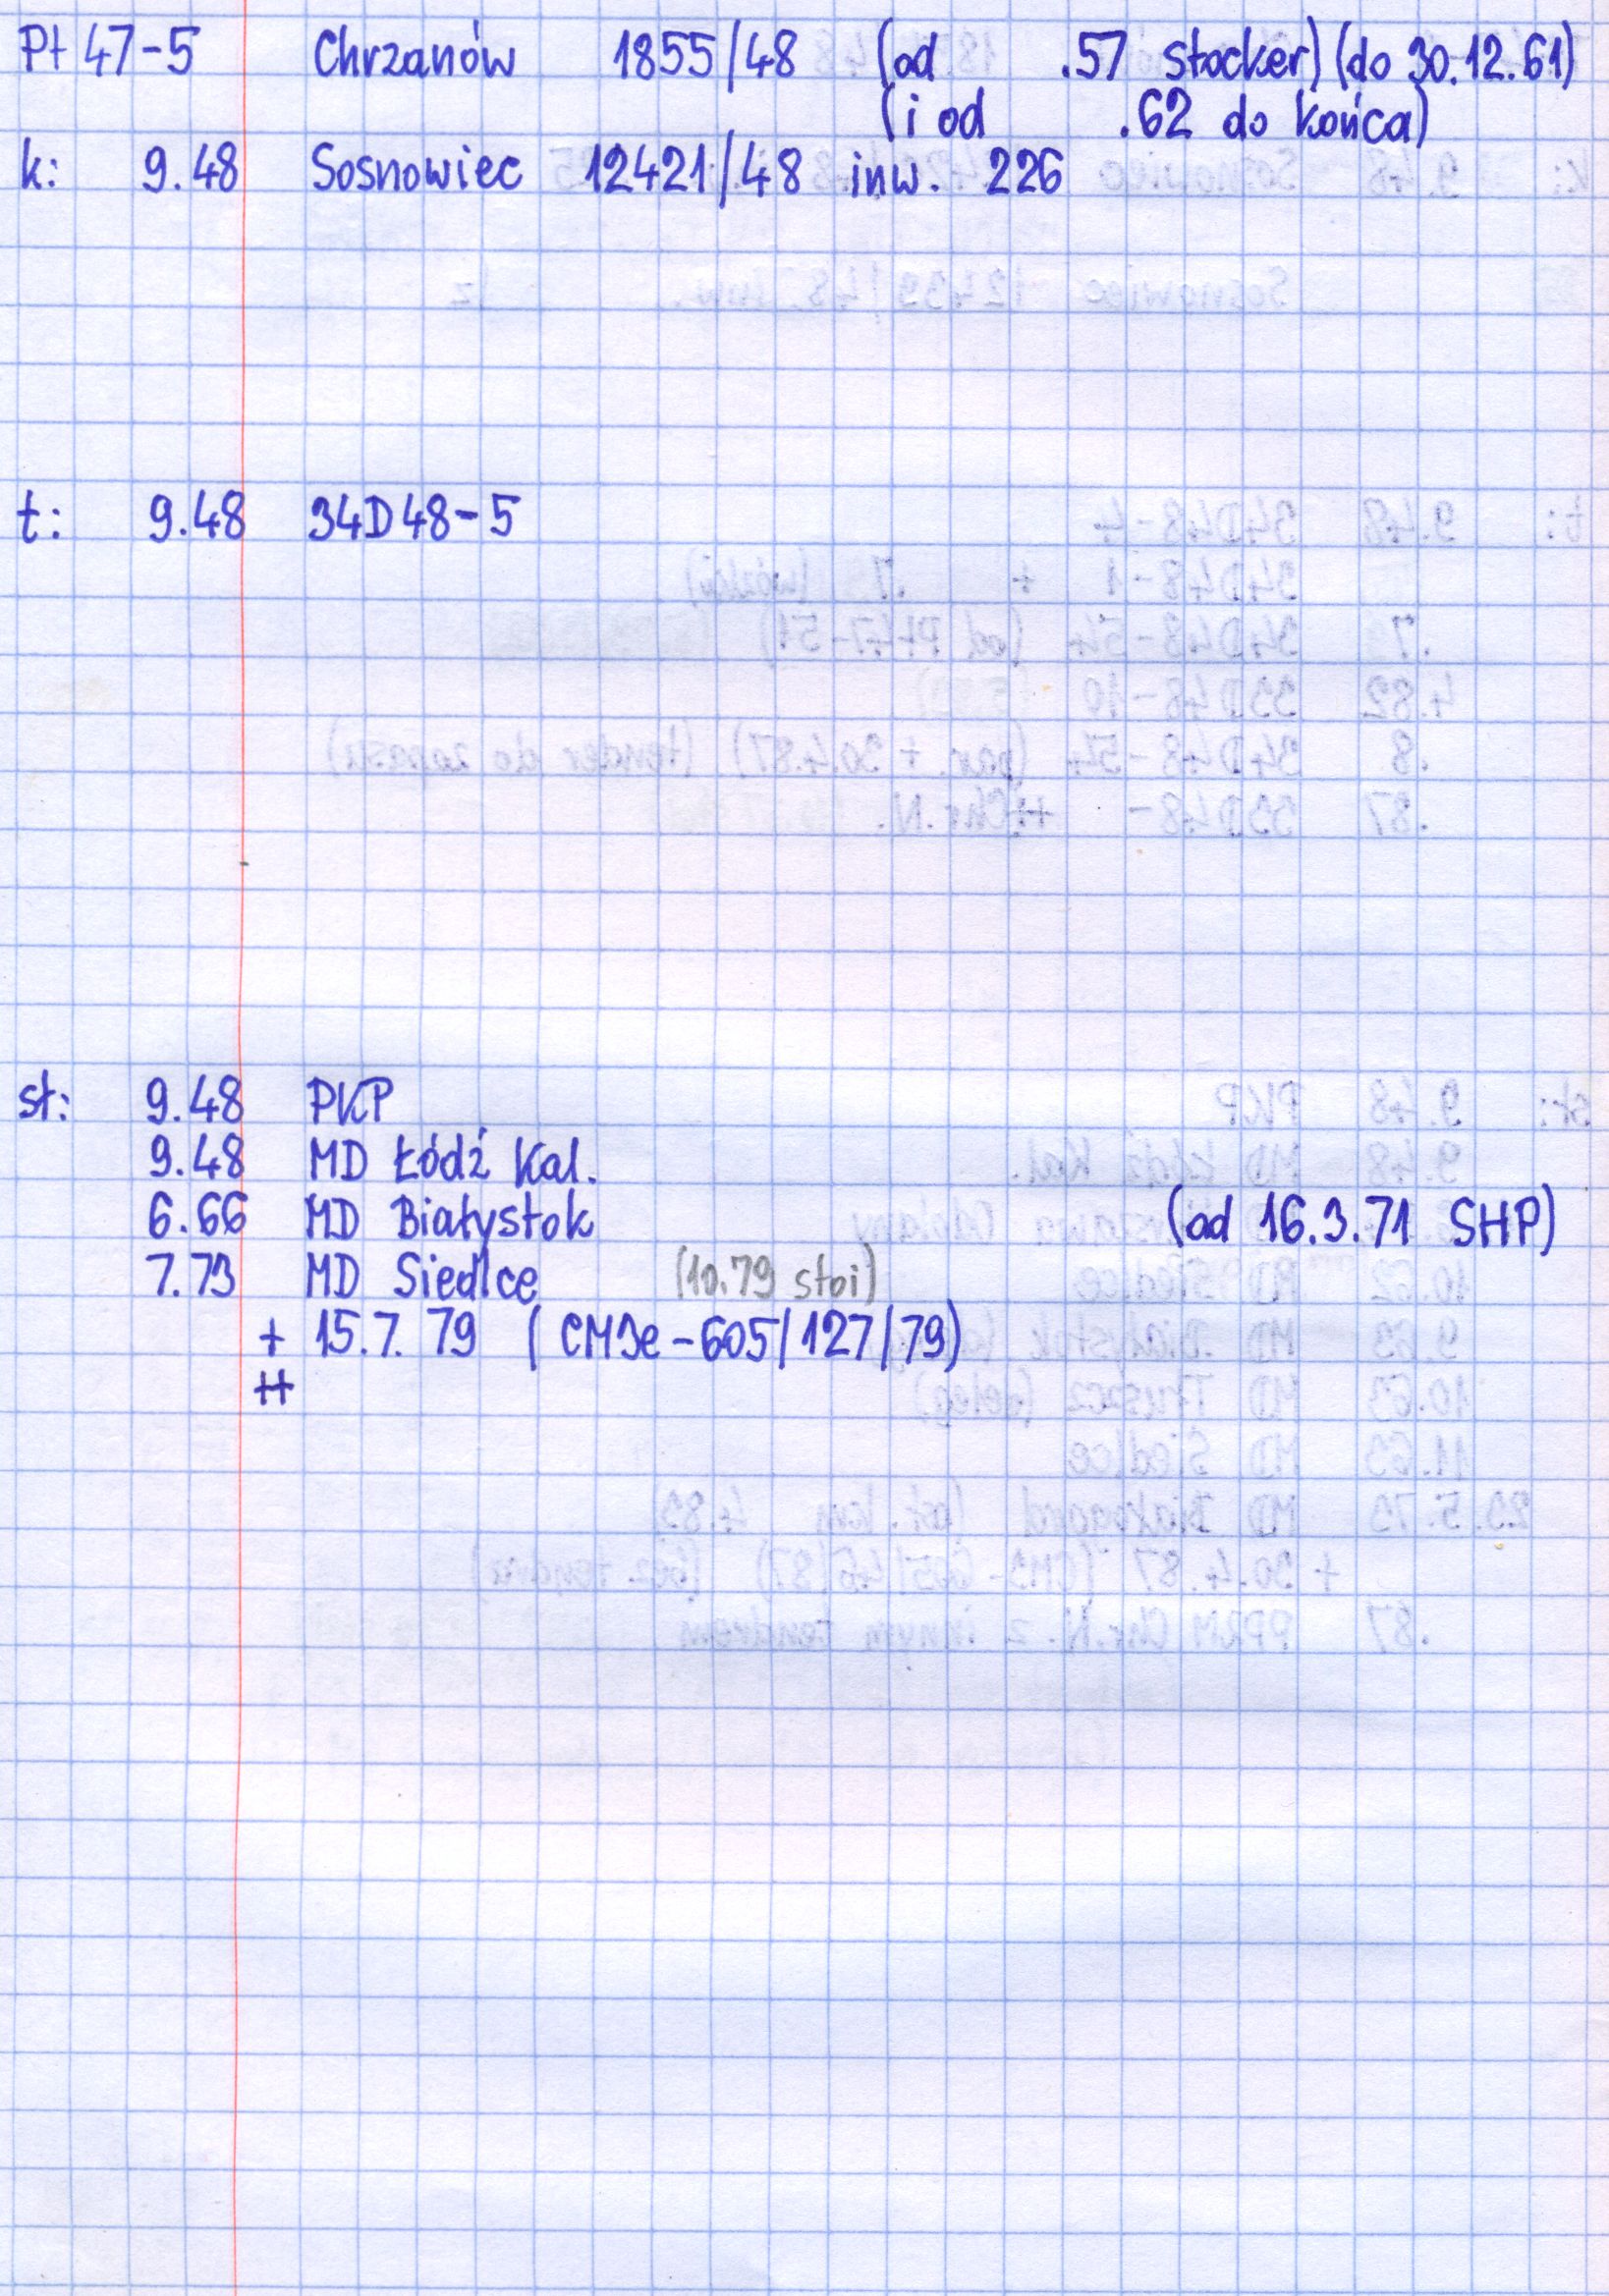 Pt 47-5 Chrzanów 1855/48 (od .57 stocker) (do 30.12.61)
(i od .62 do końca)
k: 9.48 Sosnowiec 12421/48 inw. 226
t: 9.48 34D48-5
st: 9.48 PKP
9.48 MD Łódź Kal.
6.66 MD Białystok (od 16.3.71 SHP)
7.73 MD Siedlce (10.79 stoi)
+ 15.7.79 (CM3e-605/127/79)
++